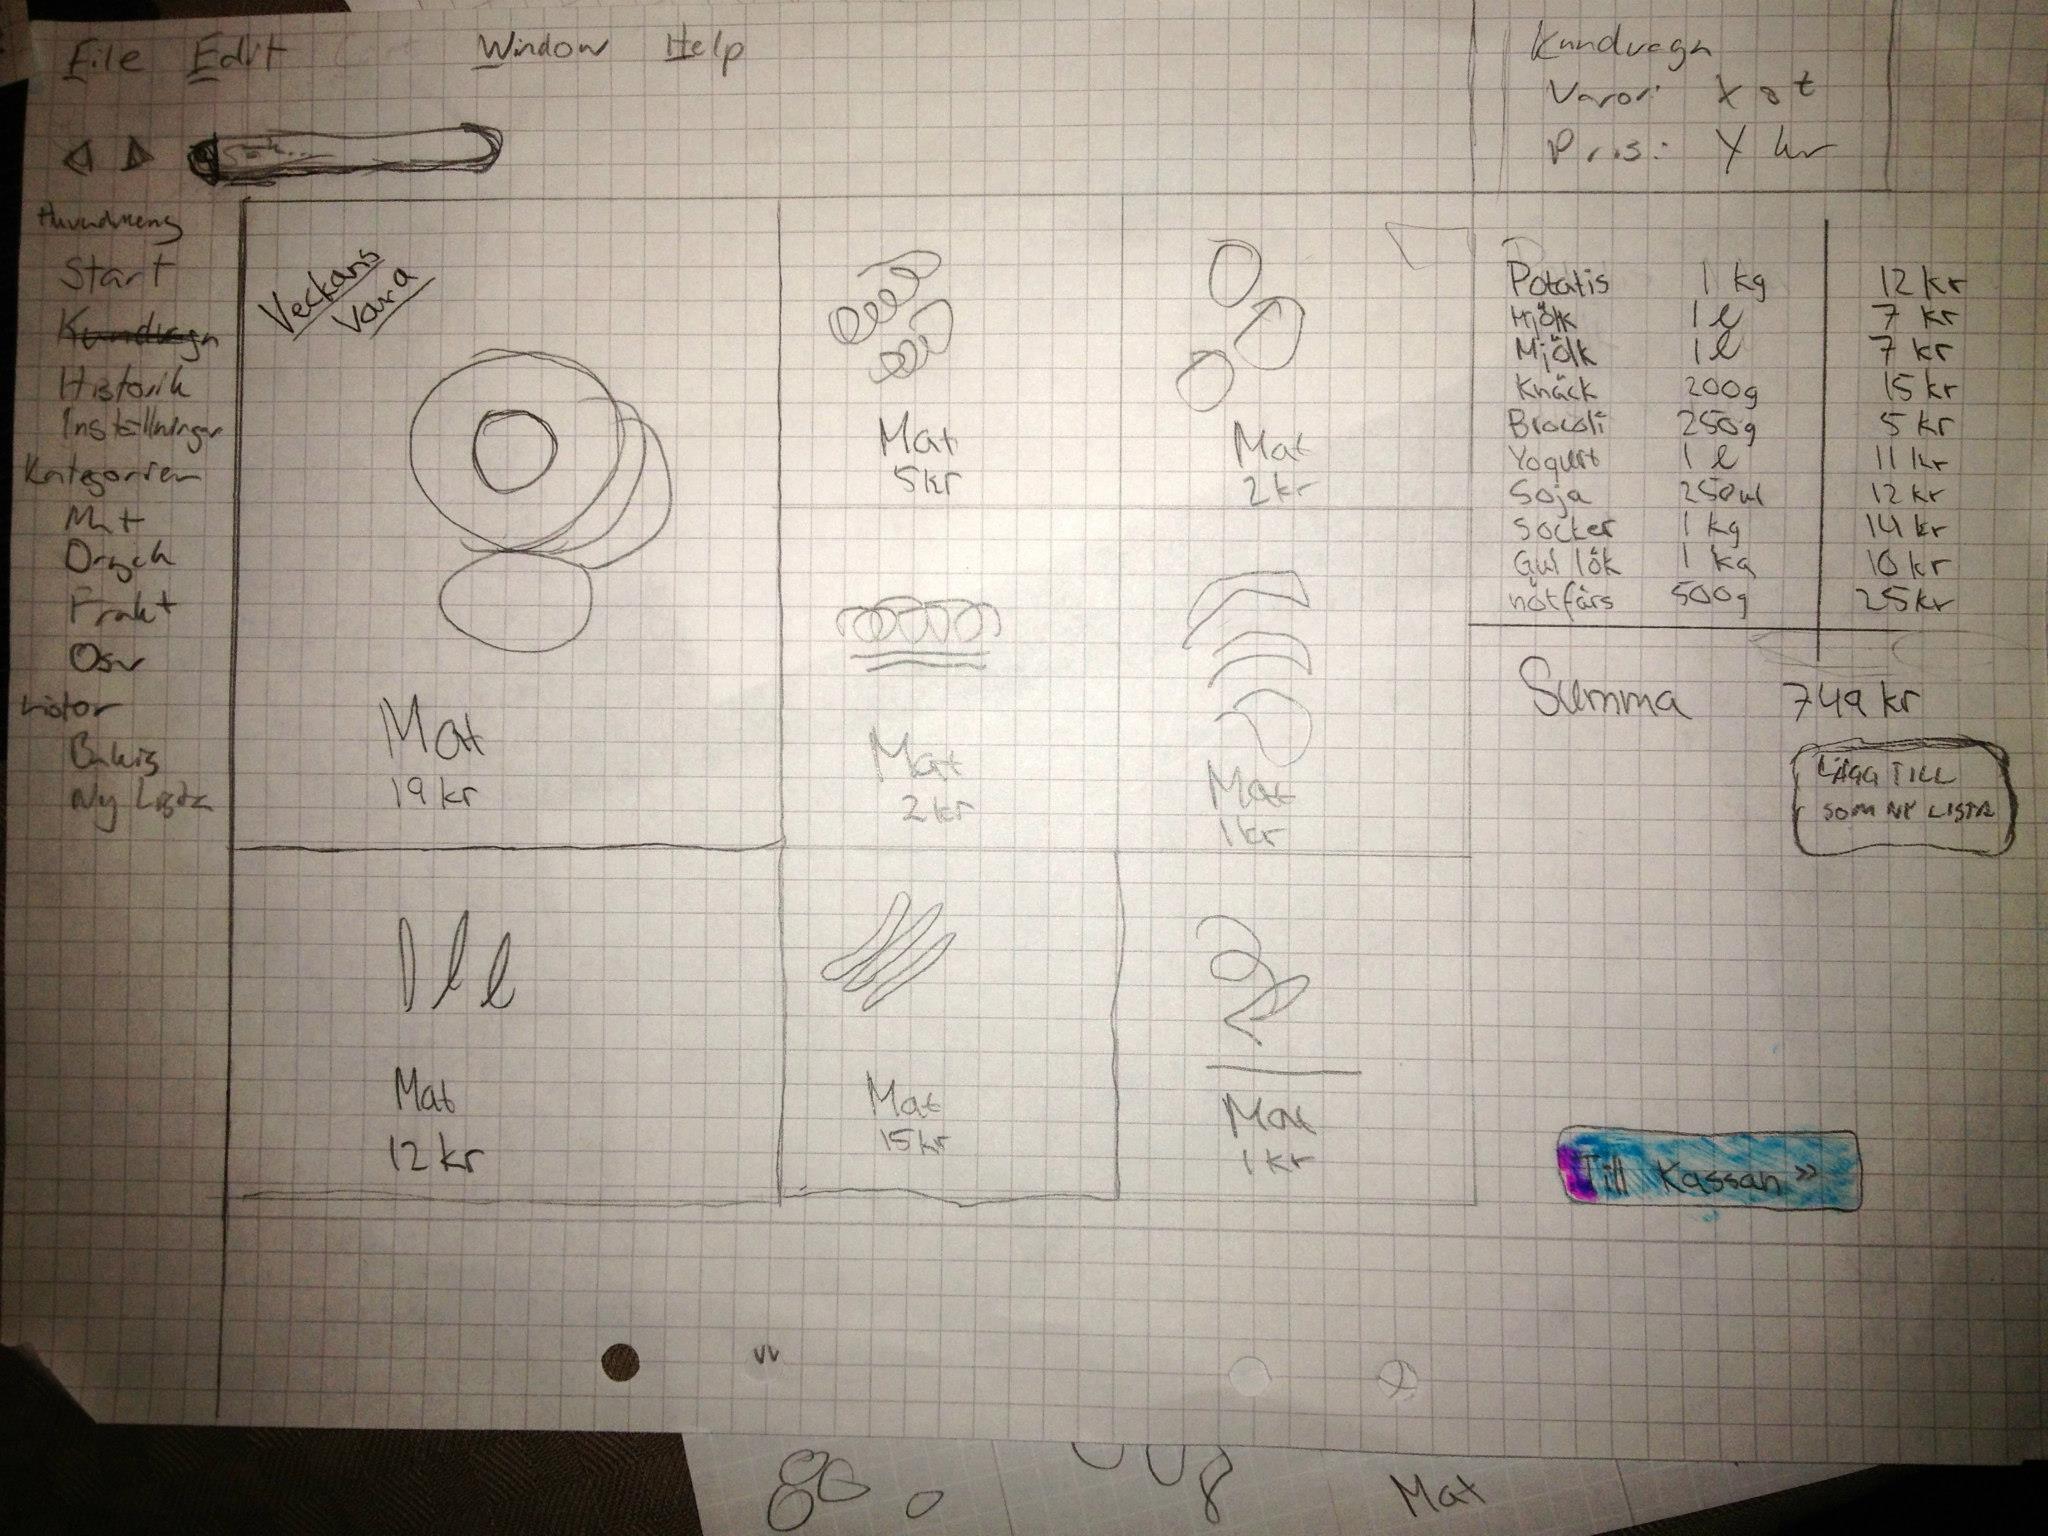 File Edit Window Help
Kundvagn
Varor: X st
Pris: Y kr
Sök...
Huvudmeny
Start
Kundvagn
Historik
Inställningar
Kategorier
Mat
Dryck
Frukt
Osv
Listor
Ny Lista
Veckans
Vara
Mat
19 kr
Mat
5kr
Mat
2 kr
Mat
2 kr
Mat
1 kr
Mat
12 kr
Mat
15 kr
Mat
1 kr
Potatis 1 kg 12 kr
Mjölk 1 l 7 kr
Mjölk 1 l 7 kr
Knäck 200g 15 kr
Brocoli 250g 5 kr
Yogurt 1 l 11 kr
Soja 250ml 12 kr
Socker 1 kg 14 kr
Gul lök 1 kg 10 kr
nötfärs 500g 25 kr
Summa 749 kr
LÄGG TILL
SOM NY LISTA
Till Kassan »
Mat